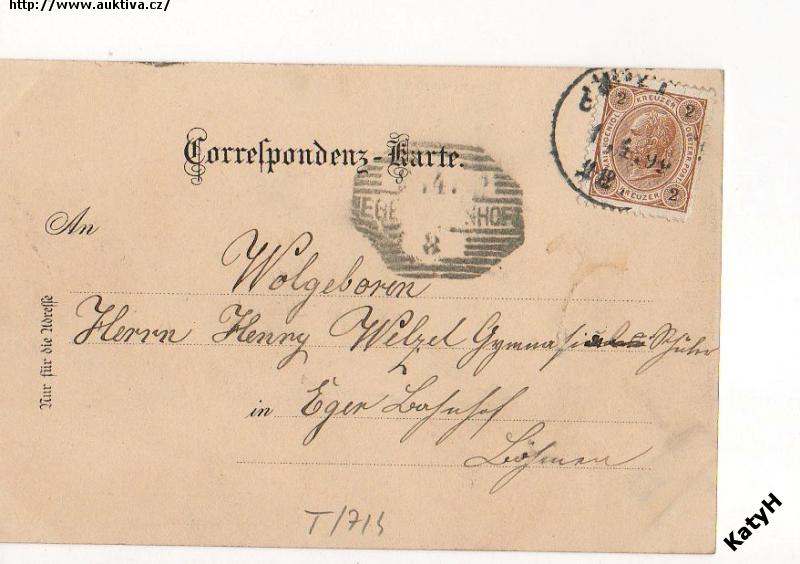 http://www.auktiva.cz/
Correspondenz-Karte.
2 KREUZER 2
2 KREUZER 2
EGER
8
An
Nur für die Adresse
Wolgeboren
Herrn Henry Welzel Gymnasial Schüler
in Eger Bahnhof
Böhmen
T/714
KatyH